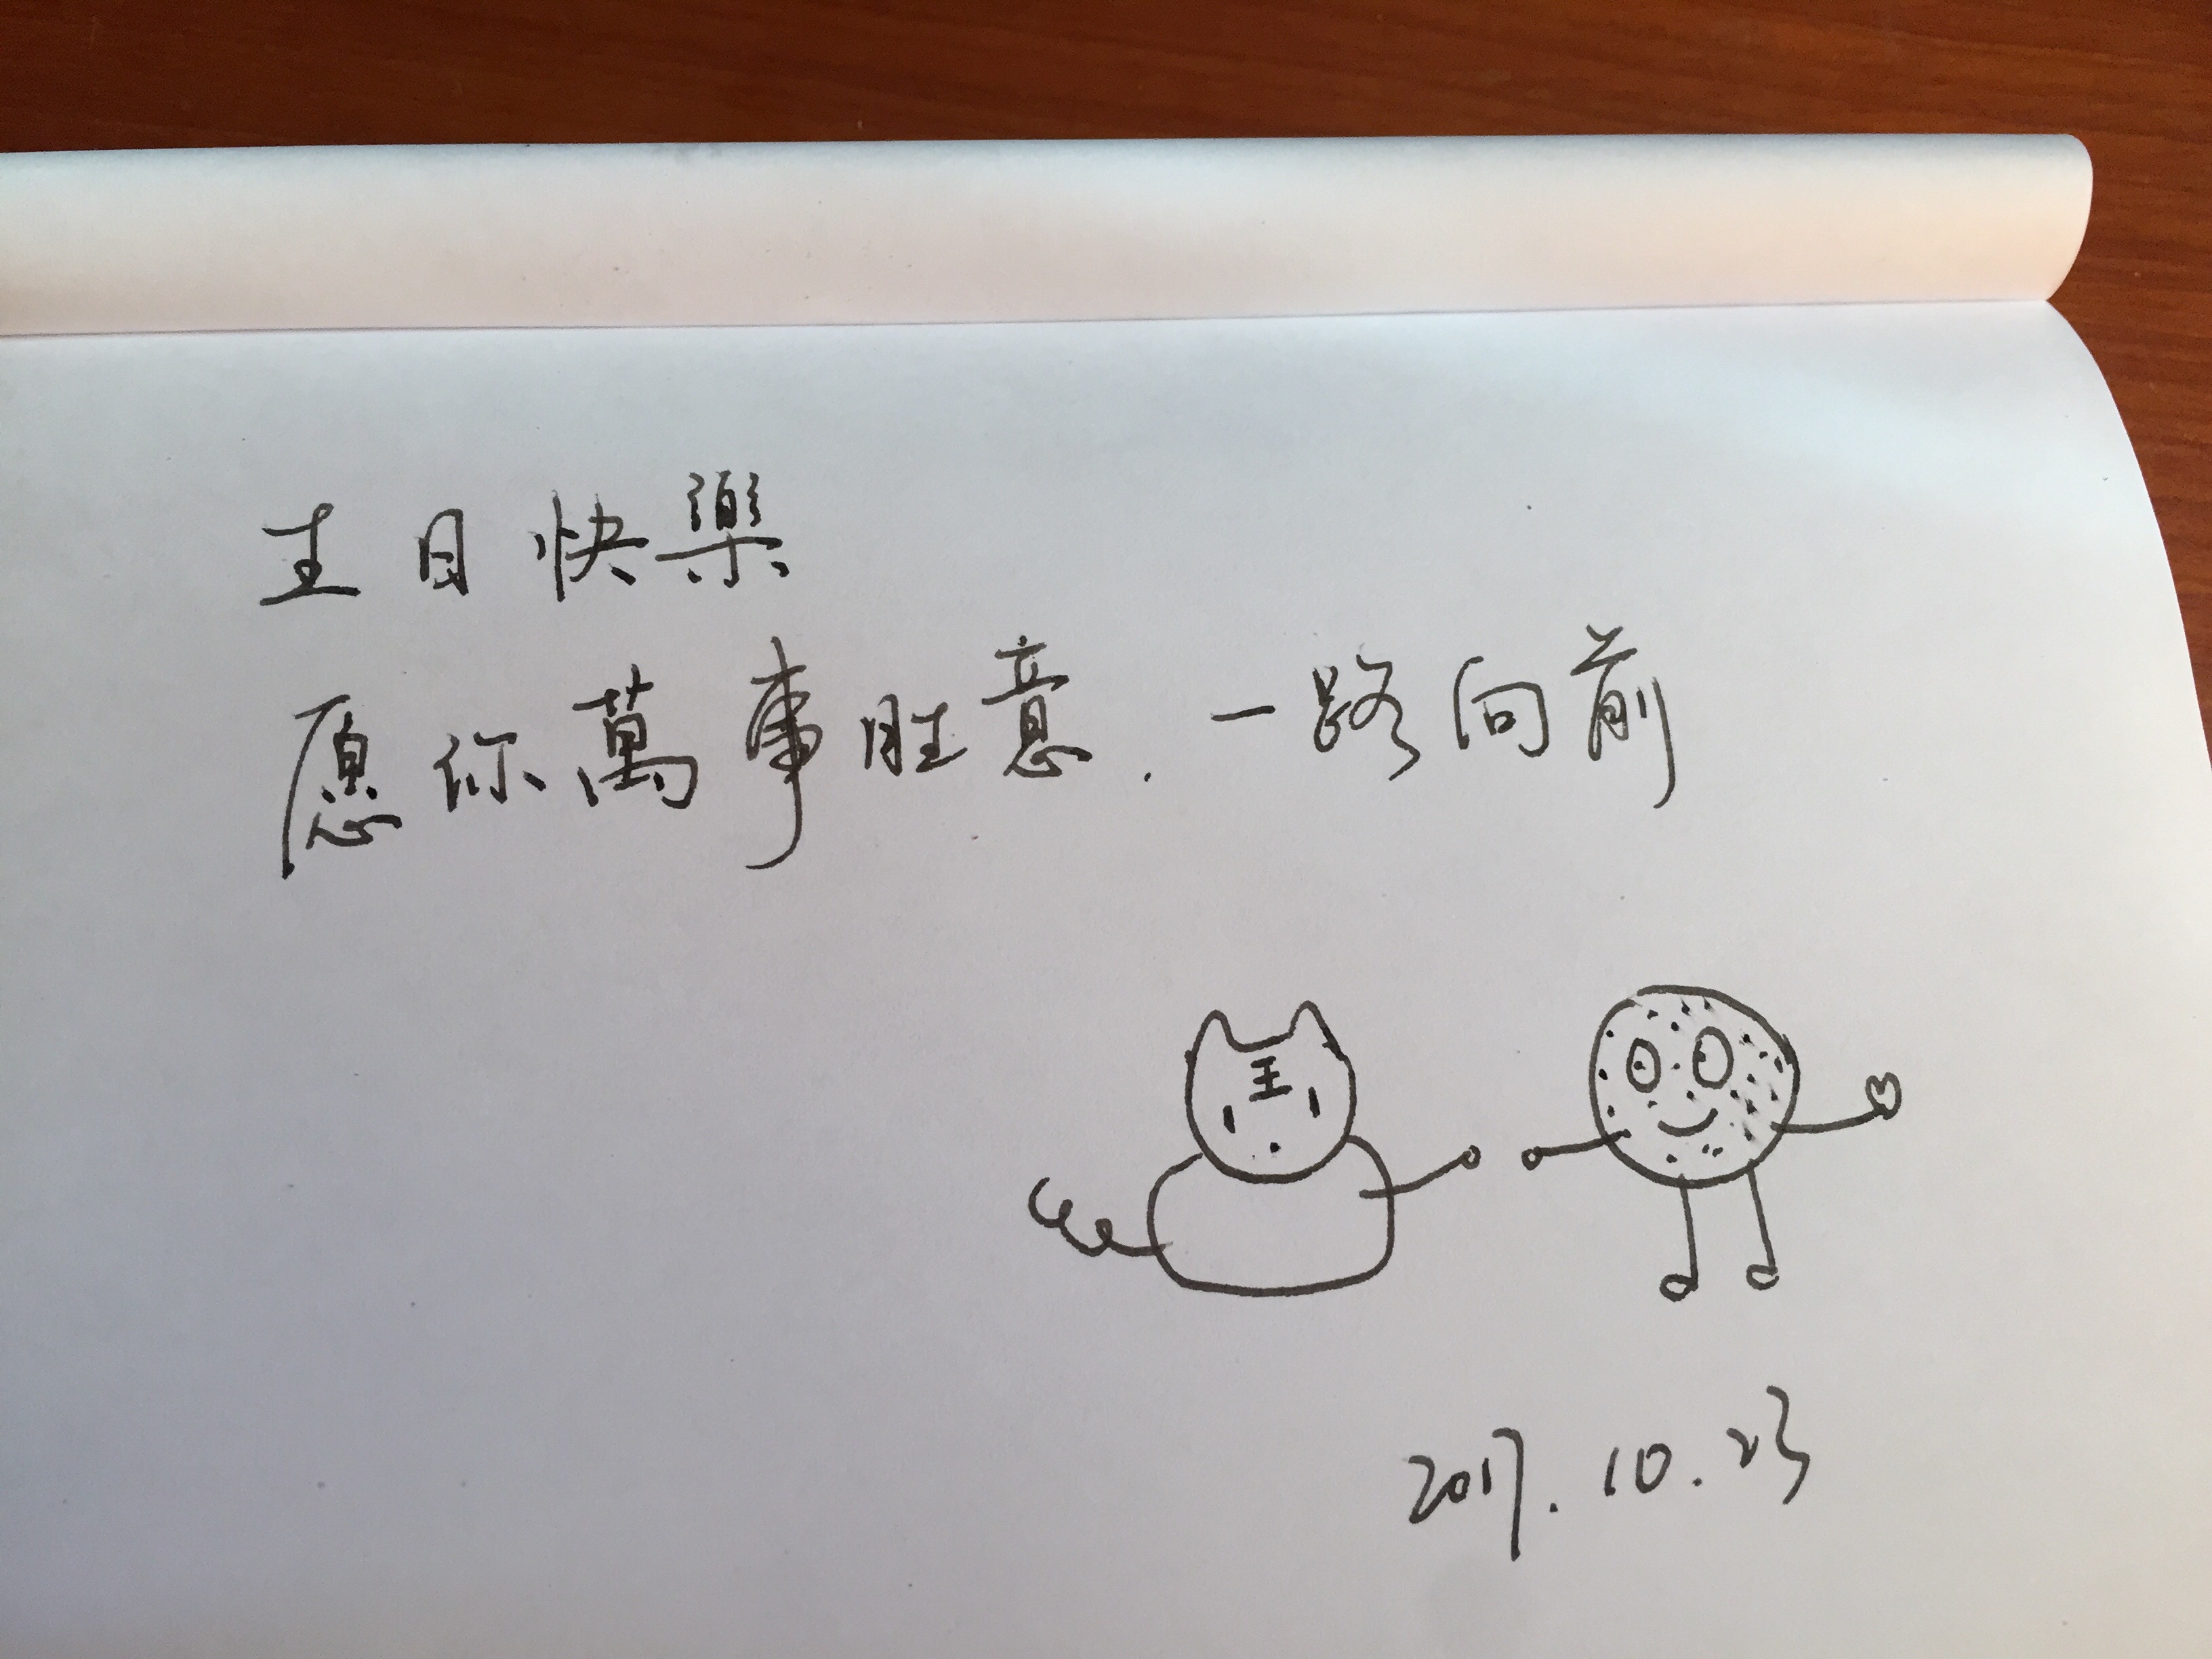 生日快樂
愿你萬事胜意.一路向前
王
2017.10.23